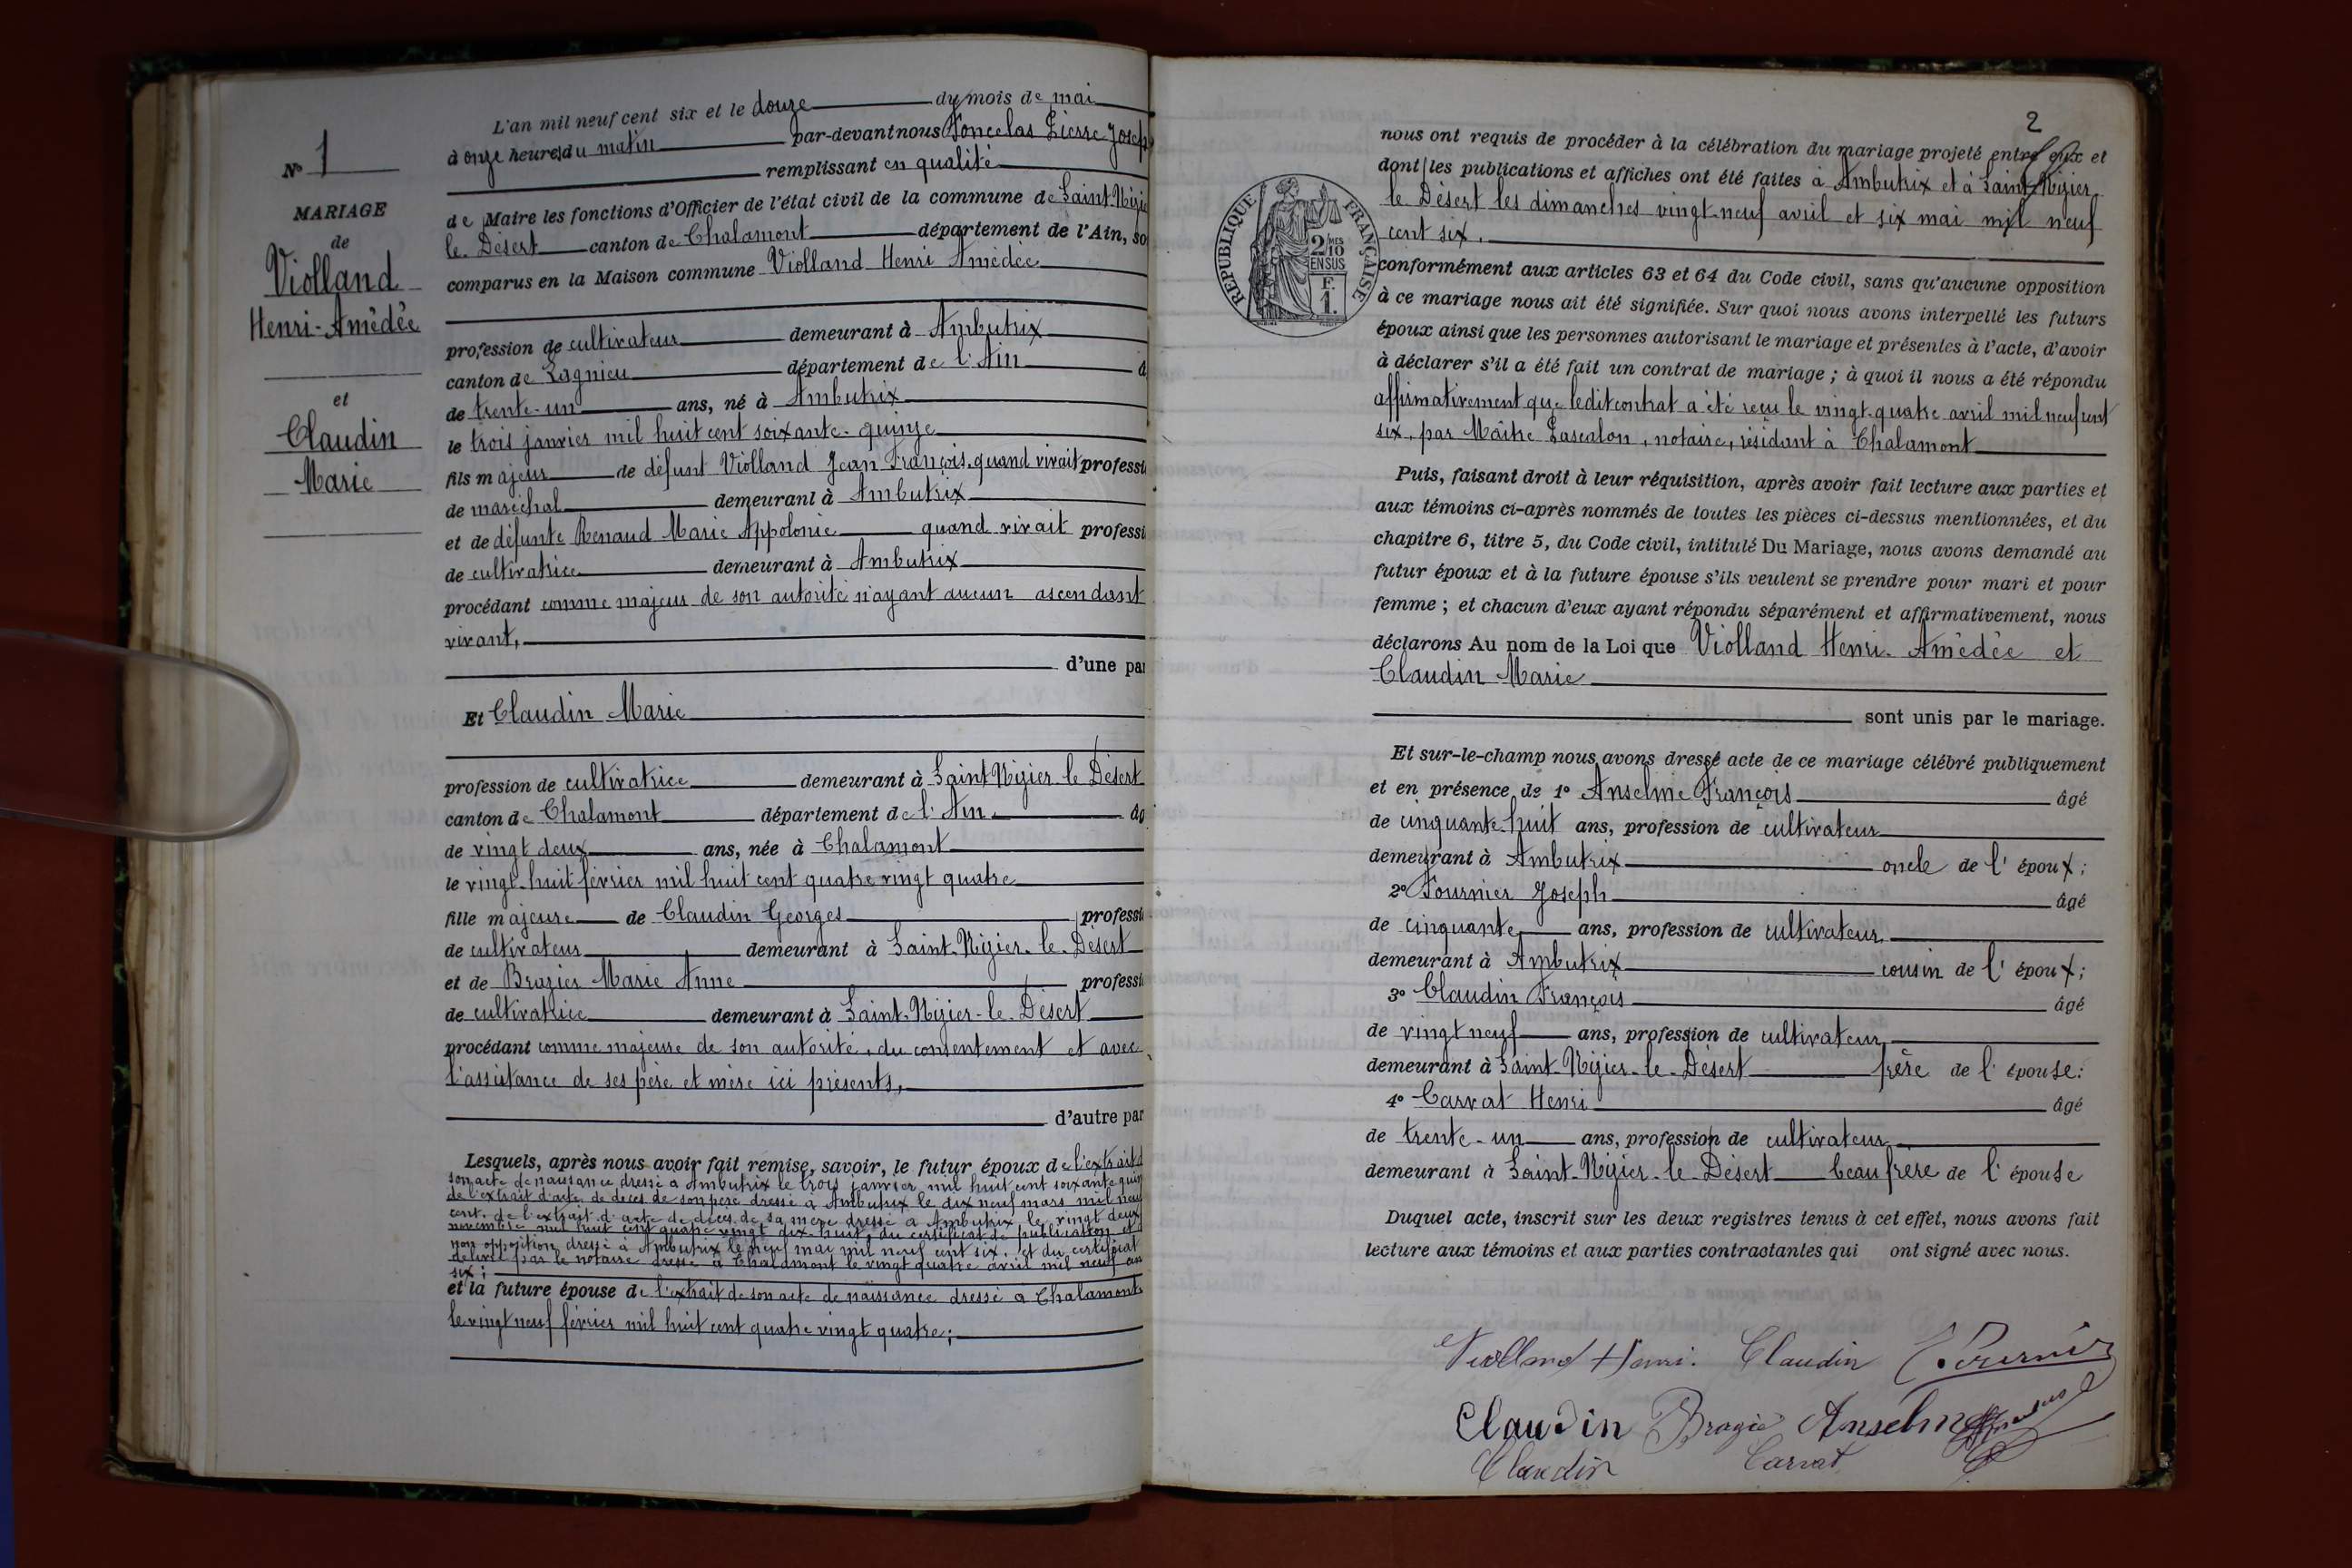 N° 1
MARIAGE
de
Violland
Henri-Amédée
et
Claudin
Marie
L'an mil neuf cent six et le douze du mois de mai
à onze heures du matin par-devant nous Poncelas Pierre Josep
remplissant en qualité
de Maire les fonctions d'Officier de l'état civil de la commune de Saint-Nizie
le Désert canton de Chalamont département de l'Ain, so
comparus en la Maison commune Violland Henri Amédée
profession de cultivateur demeurant à Ambutrix
canton de Lagnieu département de l'Ain â
de trente-un ans, né à Ambutrix
le trois janvier mil huit cent soixante-quinze
fils majeur de défunt Violland Jean-François, quand vivait professi
de maréchal demeurant à Ambutrix
et de défunte Renaud Marie Appolonie quand vivait professi
de cultivatrice demeurant à Ambutrix
procédant comme majeur de son autorité n'ayant aucun ascendant
vivant,
d'une par
Et Claudin Marie
profession de cultivatrice demeurant à Saint Nizier le Désert
canton de Chalamont département de l'Ain âg
de vingt deux ans, née à Chalamont
le vingt-huit février mil huit cent quatre vingt quatre
fille majeure de Claudin Georges professi
de cultivateur demeurant à Saint-Nizier-le-Désert
et de Brazier Marie Anne professi
de cultivatrice demeurant à Saint-Nizier-le-Désert
procédant comme majeure de son autorité, du consentement et avec
l'assistance de ses père et mère ici présents,
d'autre par
Lesquels, après nous avoir fait remise, savoir, le futur époux de l'extrait d
son acte de naissance dressé à Ambutrix le trois janvier mil huit cent soixante quin
de l'extrait d'acte de décès de son père dressé à Ambutrix le dix neuf mars mil neuf
cent, de l'extrait d'acte de décès de sa mère dressé à Ambutrix le vingt deux
novembre mil huit cent quatre vingt dix huit, du certificat de publication et d
non opposition dressé à Ambutrix le neuf mai mil neuf cent six, et du certificat
délivré par le notaire dressé à Chalamont le vingt quatre avril mil neuf cen
six;
et la future épouse de l'extrait de son acte de naissance dressé à Chalamont
le vingt neuf février mil huit cent quatre vingt quatre;
2
nous ont requis de procéder à la célébration du mariage projeté entre eux et
dont les publications et affiches ont été faites à Ambutrix et à Saint-Nizier
le Désert les dimanches vingt-neuf avril et six mai mil neuf
cent six.
RÉPUBLIQUE FRANÇAISE
2/10MES
EN SUS
F.
1.
conformément aux articles 63 et 64 du Code civil, sans qu'aucune opposition
à ce mariage nous ait été signifiée. Sur quoi nous avons interpellé les futurs
époux ainsi que les personnes autorisant le mariage et présentes à l'acte, d'avoir
à déclarer s'il a été fait un contrat de mariage; à quoi il nous a été répondu
affirmativement que ledit contrat a été reçu le vingt-quatre avril mil neuf cent
six, par Maître Lascalon, notaire, résidant à Chalamont
Puis, faisant droit à leur réquisition, après avoir fait lecture aux parties et
aux témoins ci-après nommés de toutes les pièces ci-dessus mentionnées, et du
chapitre 6, titre 5, du Code civil, intitulé Du Mariage, nous avons demandé au
futur époux et à la future épouse s'ils veulent se prendre pour mari et pour
femme; et chacun d'eux ayant répondu séparément et affirmativement, nous
déclarons Au nom de la Loi que Violland Henri-Amédée et
Claudin Marie
sont unis par le mariage.
Et sur-le-champ nous avons dressé acte de ce mariage célébré publiquement
et en présence de 1° Anselme François âgé
de cinquante-huit ans, profession de cultivateur
demeurant à Ambutrix oncle de l'époux;
2° Fournier Joseph âgé
de cinquante ans, profession de cultivateur
demeurant à Ambutrix cousin de l'époux;
3° Claudin François âgé
de vingt neuf ans, profession de cultivateur
demeurant à Saint-Nizier-le-Désert frère de l'épouse:
4° Carrat Henri âgé
de trente-un ans, profession de cultivateur
demeurant à Saint-Nizier-le-Désert beau frère de l'épouse
Duquel acte, inscrit sur les deux registres tenus à cet effet, nous avons fait
lecture aux témoins et aux parties contractantes qui ont signé avec nous.
Violland Henri. Claudin Fournier
Claudin Brazier Anselme
Claudin Carrat